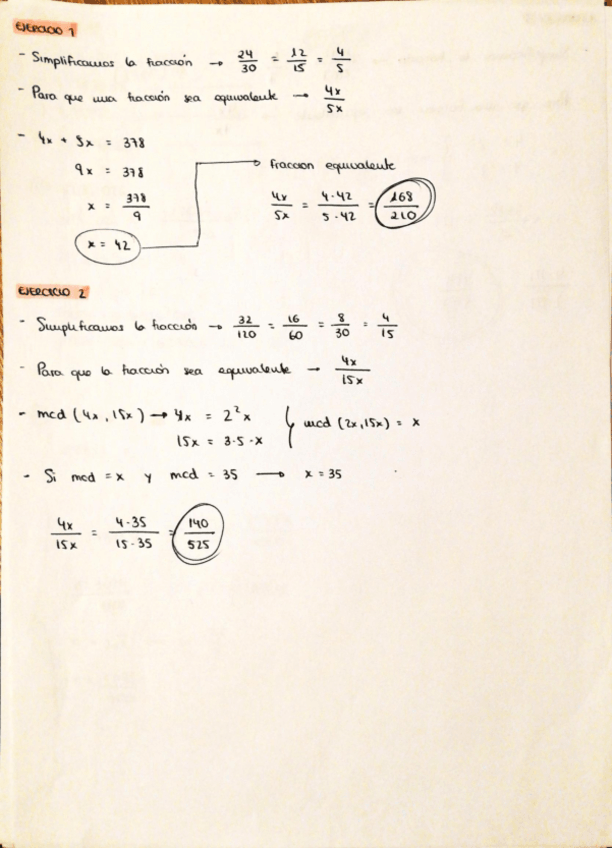 EJERCICIO 1
- Simplificamos la fracción → 24/30 = 12/15 = 4/5
- Para que una fracción sea equivalente → 4x/5x
- 4x + 5x = 378
9x = 378
x = 378/9
x = 42
fraccion equivalente
4x/5x = 4·42/5·42 = 168/210
EJERCICIO 2
- Simplificamos la fracción → 32/120 = 16/60 = 8/30 = 4/15
- Para que la fracción sea equivalente → 4x/15x
- mcd (4x, 15x) → 4x = 2²x
15x = 3·5·x
mcd (2x, 15x) = x
- Si mcd = x y mcd = 35 → x = 35
4x/15x = 4·35/15·35 = 140/525